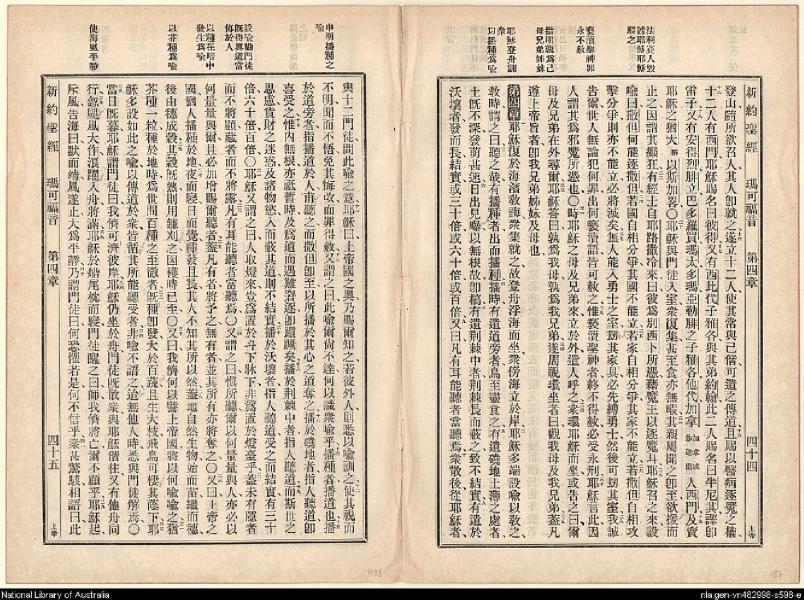 新約聖經 瑪可福音 第四章 四十四 上帝
法利賽人毀
謗耶穌耶穌
駁之
褻瀆聖神罪
永不赦
指明孰為己
母兄弟姊妹
耶穌登舟訓
眾
以播種為喻
登山隨所欲召人其人卽就之遂立十二人使其常與己偕可遣之傳道且賜以醫病逐魔之權
十二人有西門耶穌賜名曰彼得又有西比代子雅各與其弟約翰此二人賜名曰半尼其譯卽
雷子又有安得烈腓立巴多羅買瑪太多瑪亞勒腓之子雅各他代加拿人西門及賣
耶穌之猶大以斯加畧〇耶穌與門徒入室眾復集甚至食亦無暇其親屬聞之卽至欲援而
止之因謂其癲狂有經士自耶路撒冷來曰彼為別西卜所憑藉魔王以逐魔耳耶穌召之來設
喻曰撒但何能逐撒但若國自相分爭其國不能立若家自相分爭其家不能立若撒但自相攻
擊分爭則亦不能立必將滅矣無人能入勇士之室刦其家具必先縛勇士然後可刦其室我誠
告爾世人無論犯何罪出何褻瀆語皆可赦之惟褻瀆聖神者終不得赦必受永刑耶穌言此因
人謂其為邪魔所憑也〇時耶穌之母及兄弟來立於外遣人呼之眾環耶穌而坐或告之曰爾
母及兄弟在外尋爾耶穌答曰孰為我母孰為我兄弟遂周視環坐者曰觀我母及我兄弟蓋凡
遵上帝旨者卽我兄弟姊妹及母也
第四章 耶穌復於海濱敎誨眾集就之故登舟浮海而坐眾傍海立於岸耶穌多端設喻以敎之
敎時謂之曰聽之哉有播種者出而播種播時有遺道旁者鳥至盡食之有遺磽地土薄之處者
土旣不深發萌甚速日出見曝以無根故卽槁有遺荊棘中者荊棘長而蔽之致不結實有遺於
沃壤者發而長結實或三十倍或六十倍或百倍又曰凡有耳能聽者當聽焉眾散後從耶穌者
申明播種之
喻
設喻勸門徒
旣得眞道當
傳於人
以種在暗中
發生為喻
以芥種為喻
使海風平靜
與十二門徒問此喻之意耶穌曰上帝國之奧乃賜爾知之若彼外人則悉以喻訓之使其視而
不明聞而不悟免其悔改而罪得赦又謂之曰此喻爾尚不達何以識衆喻乎播種者播道也播
於道旁者指播道於人甫聽之而撒但卽至以所播於其心之道奪之播於磽地者指人聽道卽
喜受之惟內無根亦祗暫時及為道而遇難窘逐卽躓蹶矣播於荊棘中者指人聽道而斯世之
思慮貨財之迷惑及諸物慾入而蔽其道則不結實播於沃壤者指人聽道受之而結實有三十
倍六十倍百倍〇耶穌又謂之曰人取燈來豈為置於斗下牀下非為置於燈臺乎蓋未有隱者
而不將顯藏者而不將露凡有耳能聽者當聽焉〇又謂之曰愼所聽爾以何量量與人亦必以
何量量與爾且必加增賜爾聽者蓋凡有者將予之無有者並其所有亦將奪之〇又曰上帝之
國猶人播種於地夜而寢日而覺種發且長其人不知其所以然蓋地自然生物始而苗繼而穗
後由穗成穀其穀旣熟則用鐮刈之因穫時已至〇又曰我儕何以譬上帝國將以何喻喻之猶
芥種一粒種於地時為世間百種之至微者旣種卽發大於百蔬且生大枝飛鳥可棲其蔭下耶
穌多設如此之喻以傳道於衆皆循其所能聽受者非喻不語之迨無他人時悉與門徒解焉〇
當日旣暮耶穌謂門徒曰我儕可濟彼岸耶穌仍坐於舟門徒旣散衆與耶穌偕往又有他舟同
行颶風大作浪躍入舟將滿耶穌於船尾枕而寢門徒醒之曰師我儕將亡爾不顧乎耶穌起
斥風告海曰默而靖風遂止大為平靜乃謂門徒曰何恐懼若是何不信乎衆甚驚駭相語曰此
新約聖經 瑪可福音 第四章 四十五 上帝
National Library of Australia
nla.gen-vn482998-s598-e